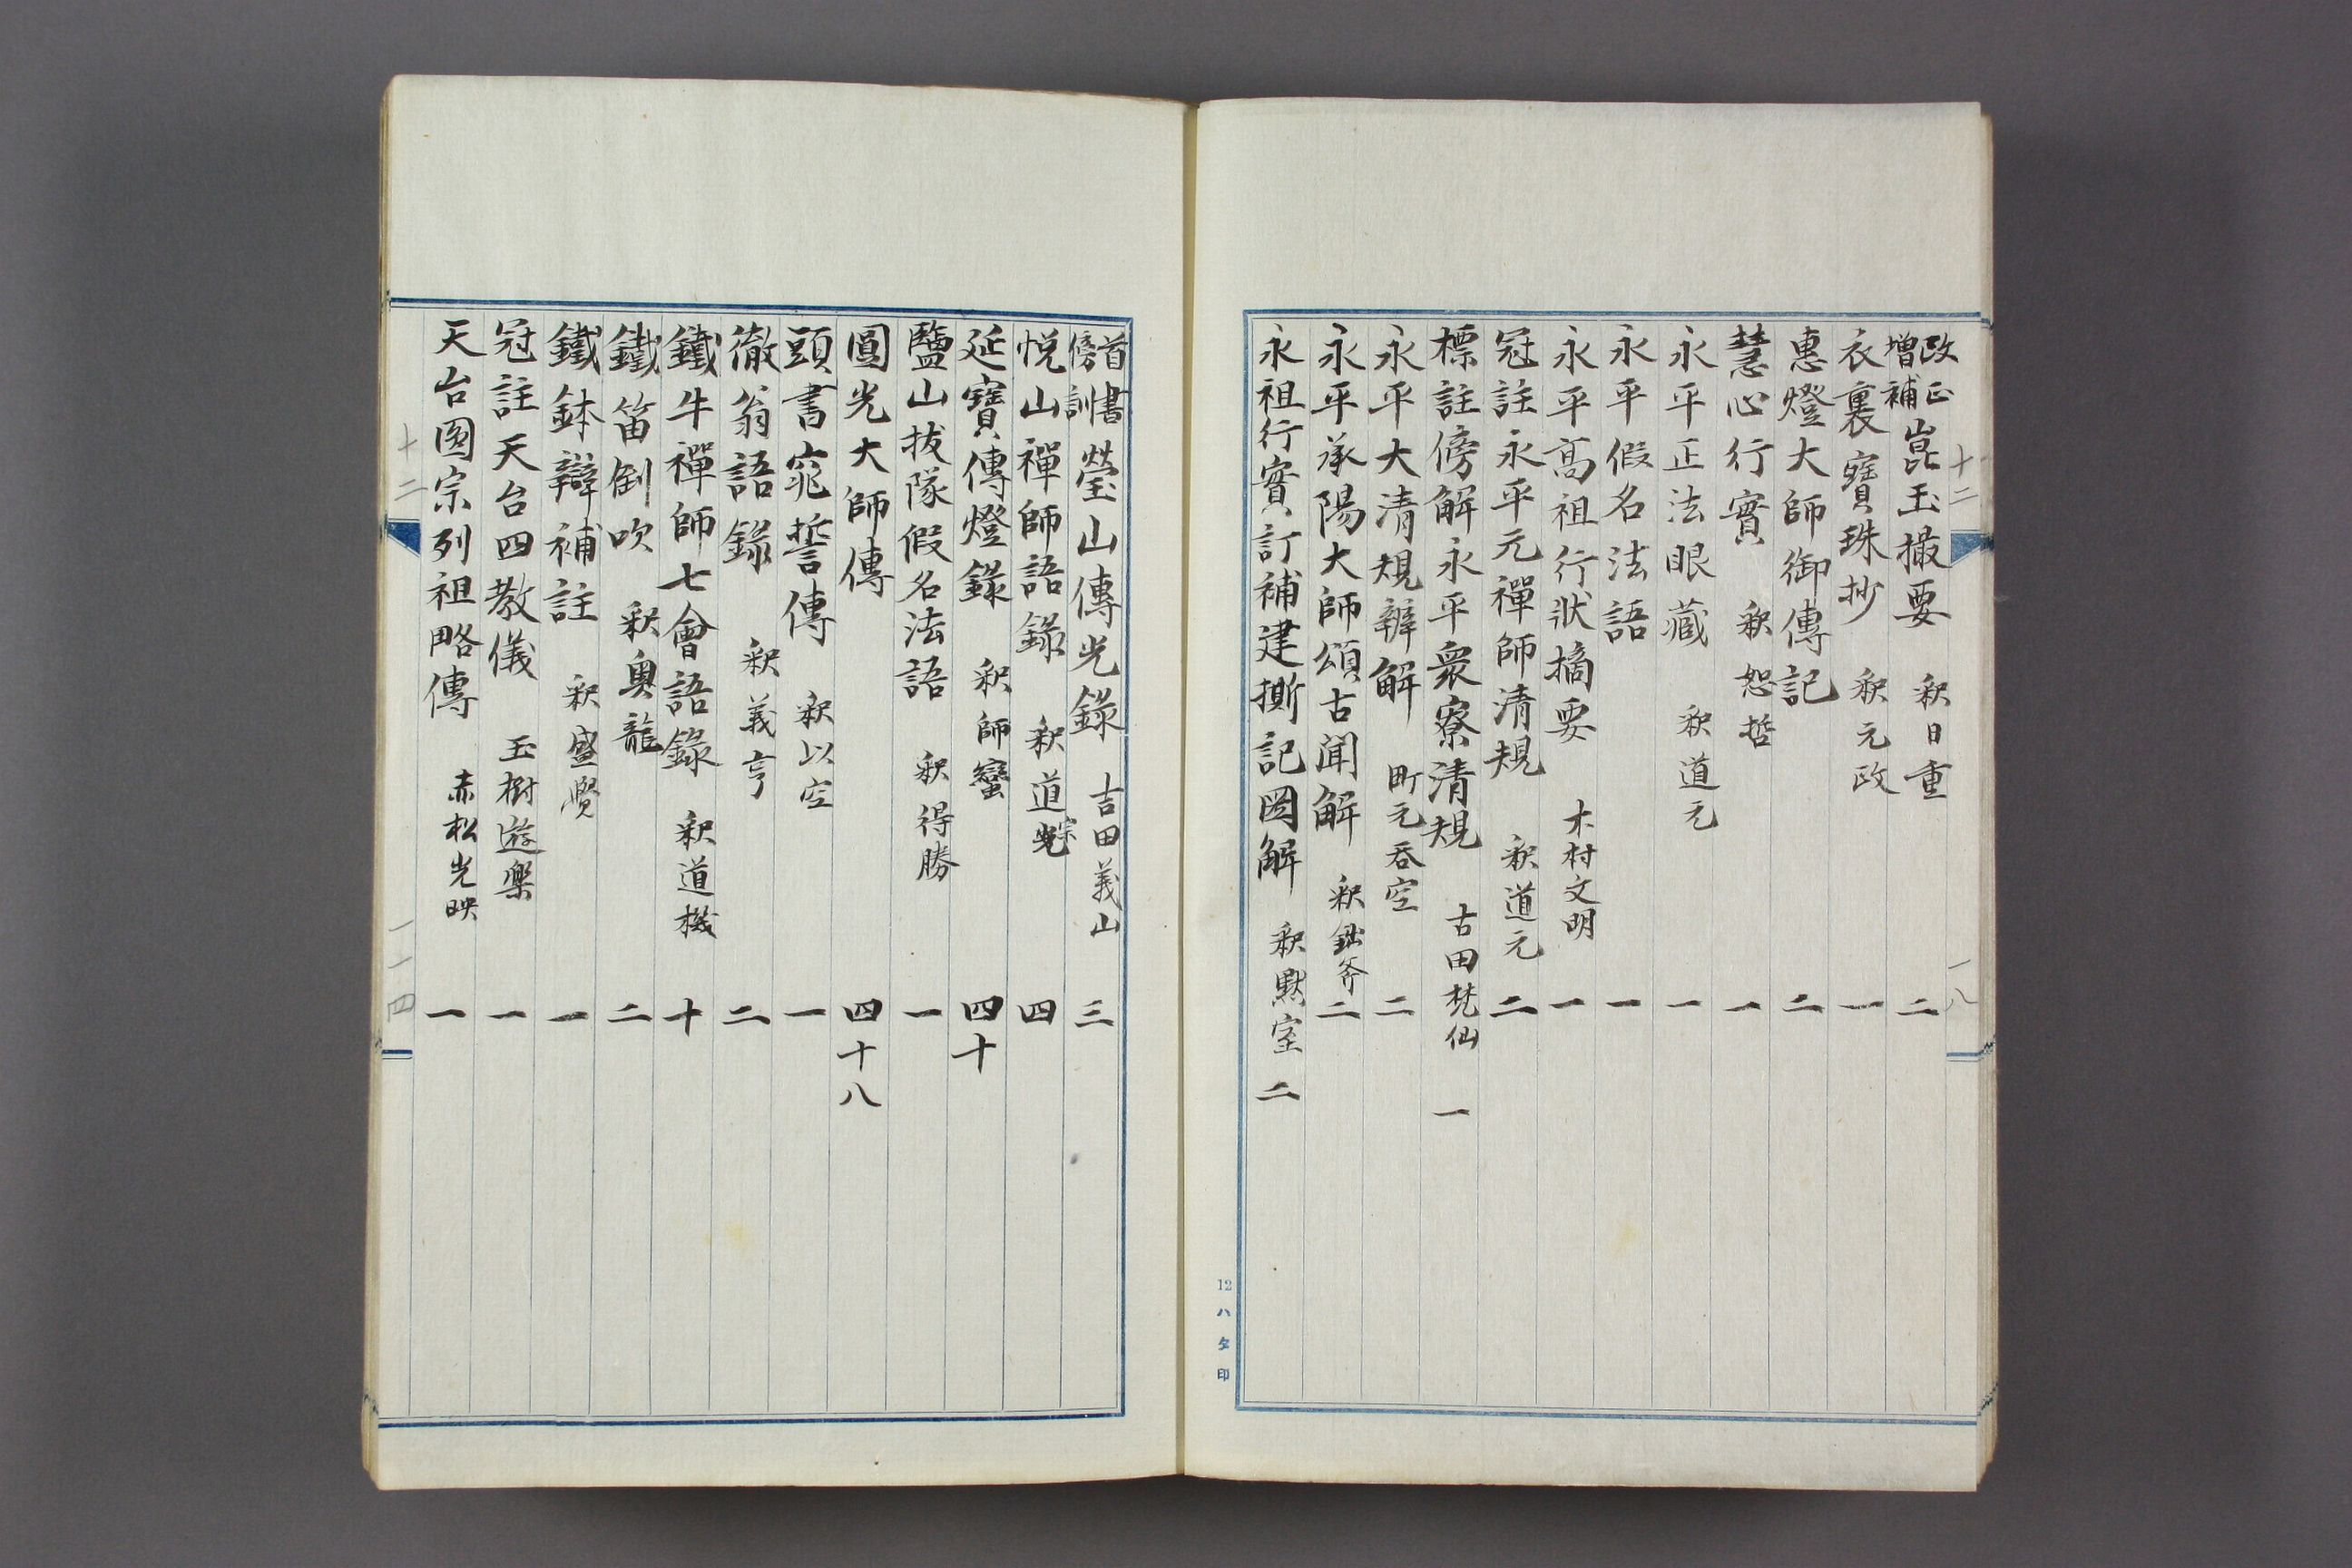 十二
一八
改正増補 崑玉撮要 釈日重 二
衣裏寳珠抄 釈元政 一
惠燈大師御傳記 二
慧心行實 釈恕哲 一
永平正法眼藏 釈道元 一
永平假名法語 一
永平高祖行狀摘要 木村文明 一
冠註永平元禪師清規 釈道元 二
標註傍解永平衆寮清規 古田梵仙 一
永平大清規辨解 町元呑空 二
永平承陽大師頌古聞解 釈鈯斧 二
永祖行實訂補建撕記圖解 釈黙室 二
12ハタ印
首書傍訓 瑩山傳光録 吉田義山 三
悦山禪師語録 釈道光宗 四
延寶傳燈録 釈師蠻 四十
鹽山拔隊假名法語 釈得勝 一
圓光大師傳 四十八
頭書窕誓傳 釈以空 一
徹翁語録 釈義亨 二
鐵牛禪師七會語録 釈道機 十
鐵笛倒吹 釈奥龍 二
鐵鉢辯補註 釈盛賢 一
冠註天台四教儀 玉樹遊樂 一
天台圓宗列祖略傳 赤松光映 一
十二
一一四